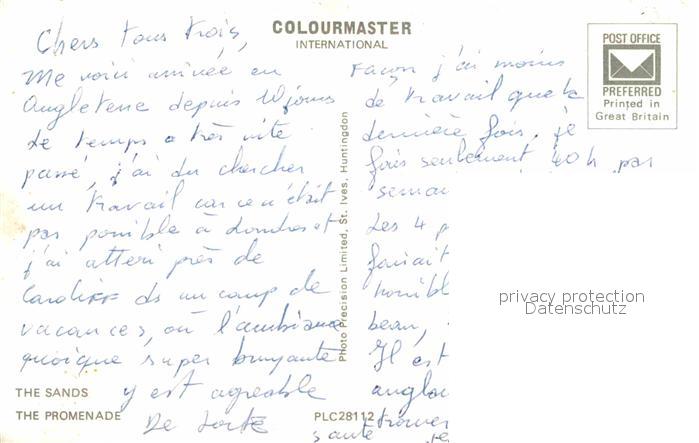 COLOURMASTER
INTERNATIONAL
POST OFFICE
PREFERRED
Printed in
Great Britain
Chers tous trois,
Me voici arrivée en
Angleterre depuis 10 jours
Le temps a très vite
passé, j'ai du chercher
un travail car ce n'était
pas possible à Londres et
j'ai atteri près de
Cardiff ds un camp de
vacances, où l'ambiance
quoique super bruyante
y est agréable
De sorte
façon j'ai moins
de travail que la
dernière fois, je
fais seulement 40 h par
semai
Les 4 p
faisait
horribl
beau,
Il est
anglai
trouver
santé
Photo Precision Limited, St. Ives, Huntingdon
THE SANDS
THE PROMENADE
PLC28112
privacy protection
Datenschutz